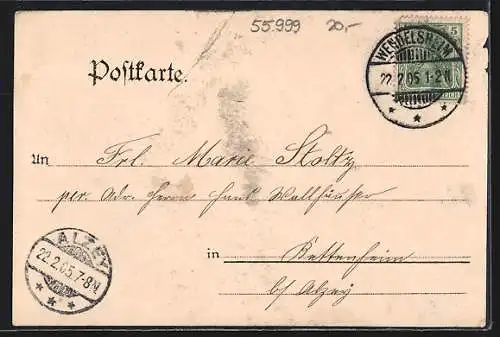 55.999 20,-
Postkarte.
5
WENDELSHEIM
22.2.05.1-2N
REICH
An Frl. Marie Stoltz
per. Adr. Herrn
in Kettenheim
b/ Alzey
ALZEY
22.2.05.7-8N